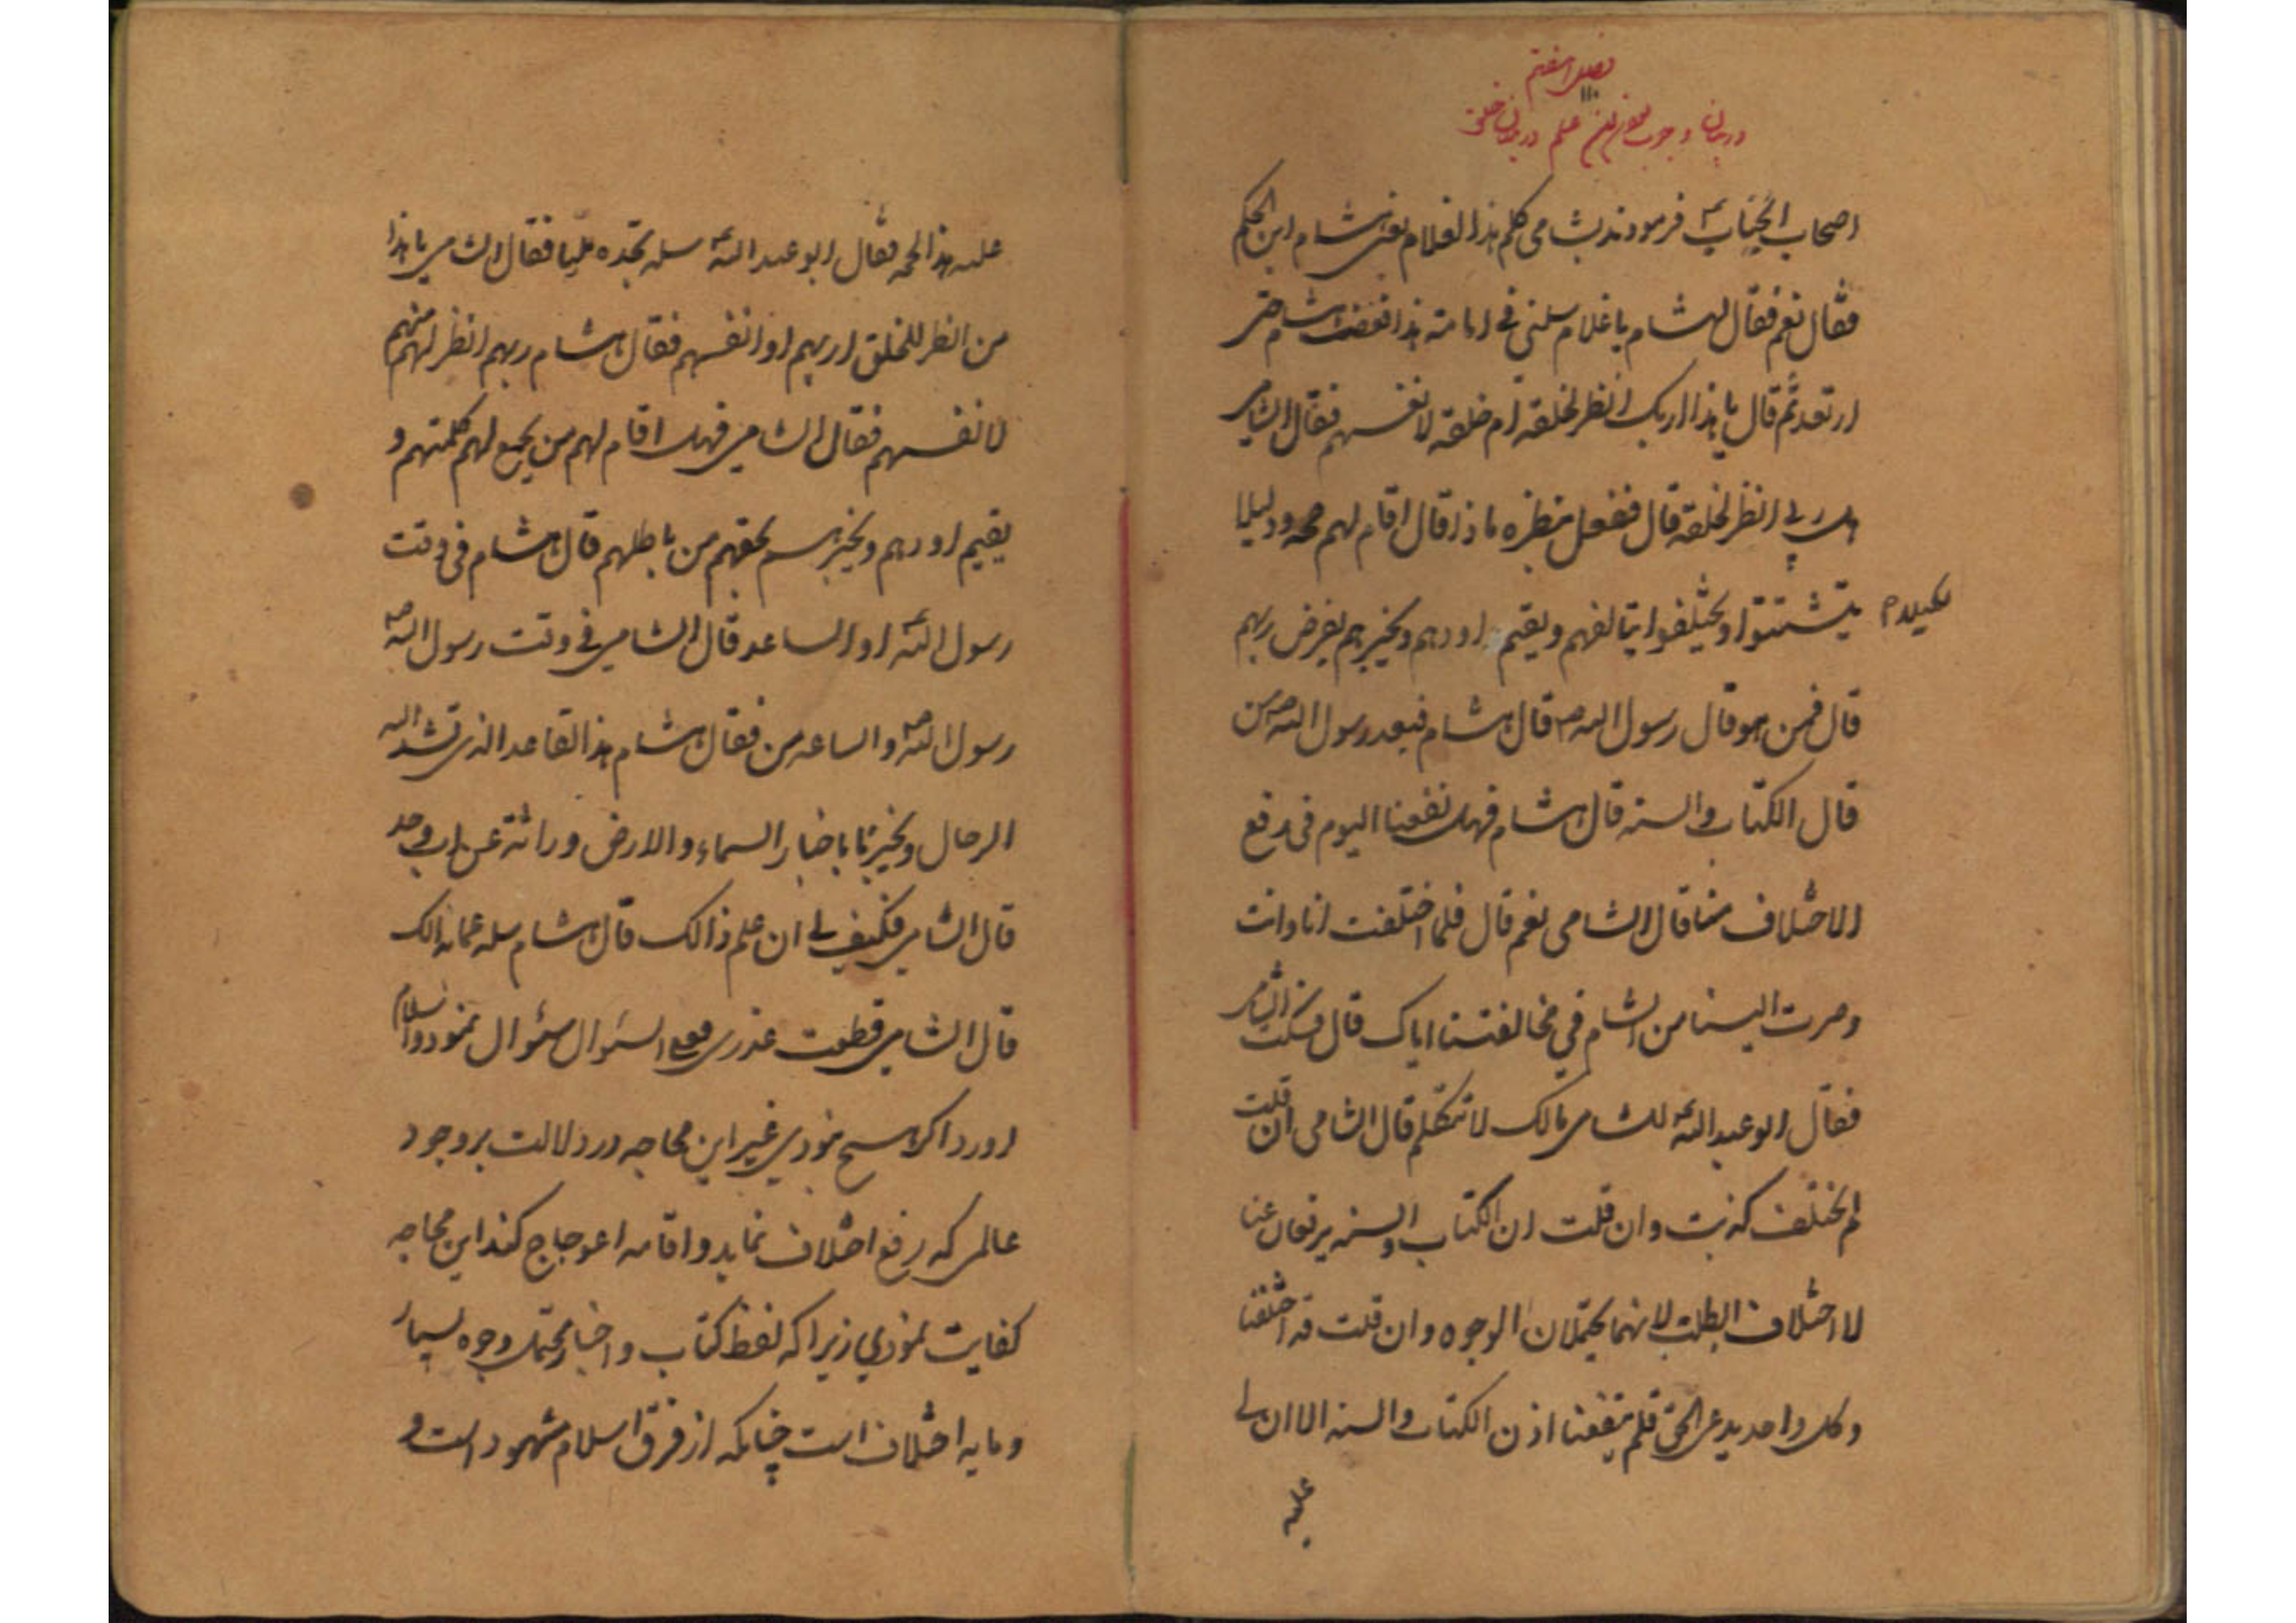 فصل هفتم
در بیان وجوب بودن عالم در میان خلق
اصحاب آنجناب ع فرمودند بشامی کلم هذا الغلام یعنی هشام ابن الحکم
فقال نعم فقال لهشام یا غلام سلنی فی امامة هذا فغضب هشام حتی
ارتعد ثم قال یا هذا اربک انظر لخلقه ام خلقه لانفسهم فقال الشامی
بل ربی انظر لخلقه قال ففعل بنظره ماذا قال اقام لهم حجه و دلیلا
لکیلا م
یتشتتوا و یختلفوا یتالفهم و یقیم اودهم و یخبرهم بفرض ربهم
قال فمن هو قال رسول الله ص قال هشام فبعد رسول الله ص من
قال الکتاب و السنه قال هشام فهل نفعنا الیوم فی رفع
الاختلاف منا قال الشامی نعم قال فلما اختلفت انا و انت
و صرت الینا من الشام فی مخالفتنا ایاک قال فسکت الشامی
فقال ابو عبد الله ع للشامی مالک لا تتکلم قال الشامی ان قلت
لم نختلف کذبت و ان قلت ان الکتاب و السنه یرفعان عنا
لا اختلاف ابطلت لانهما یحتملان الوجوه و ان قلت قد اختلفنا
و کل واحد یدعی الحق فلم ینفعنا اذن الکتاب و السنه الا ان لی
علیه
علیه هذا الحجه فقال ابو عبد الله ع سله تجده ملیا فقال الشامی یا هذا
من انظر للخلق اربهم او انفسهم فقال هشام ربهم انظر لهم منهم
لانفسهم فقال الشامی فهل اقام لهم من یجمع لهم کلمتهم و
یقیم اودهم و یخبرهم بحقهم من باطلهم قال هشام فی وقت
رسول الله ص او الساعه قال الشامی فی وقت رسول الله ص
رسول الله ص و الساعه من فقال هشام هذا القاعد الذی تشد الیه
الرحال و یخبرنا باخبار السماء و الارض وراثة عن اب و جد
قال الشامی فکیف لی ان علم ذالک قال هشام سله عما بدا لک
قال الشامی قطعت عذری فعلی السئوال سئوال نمود و اسلام
اورد اگر هیچ نبودی غیر این محاجه در دلالت بر وجود
عالمی که رفع اختلاف نماید و اقامه اعوجاج کند این محاجه
کفایت نمودی زیرا که لفظ کتاب و اخبار محتمل وجوه بسیار
و مایه اختلاف است چنانکه از فرق اسلام مشهود است و